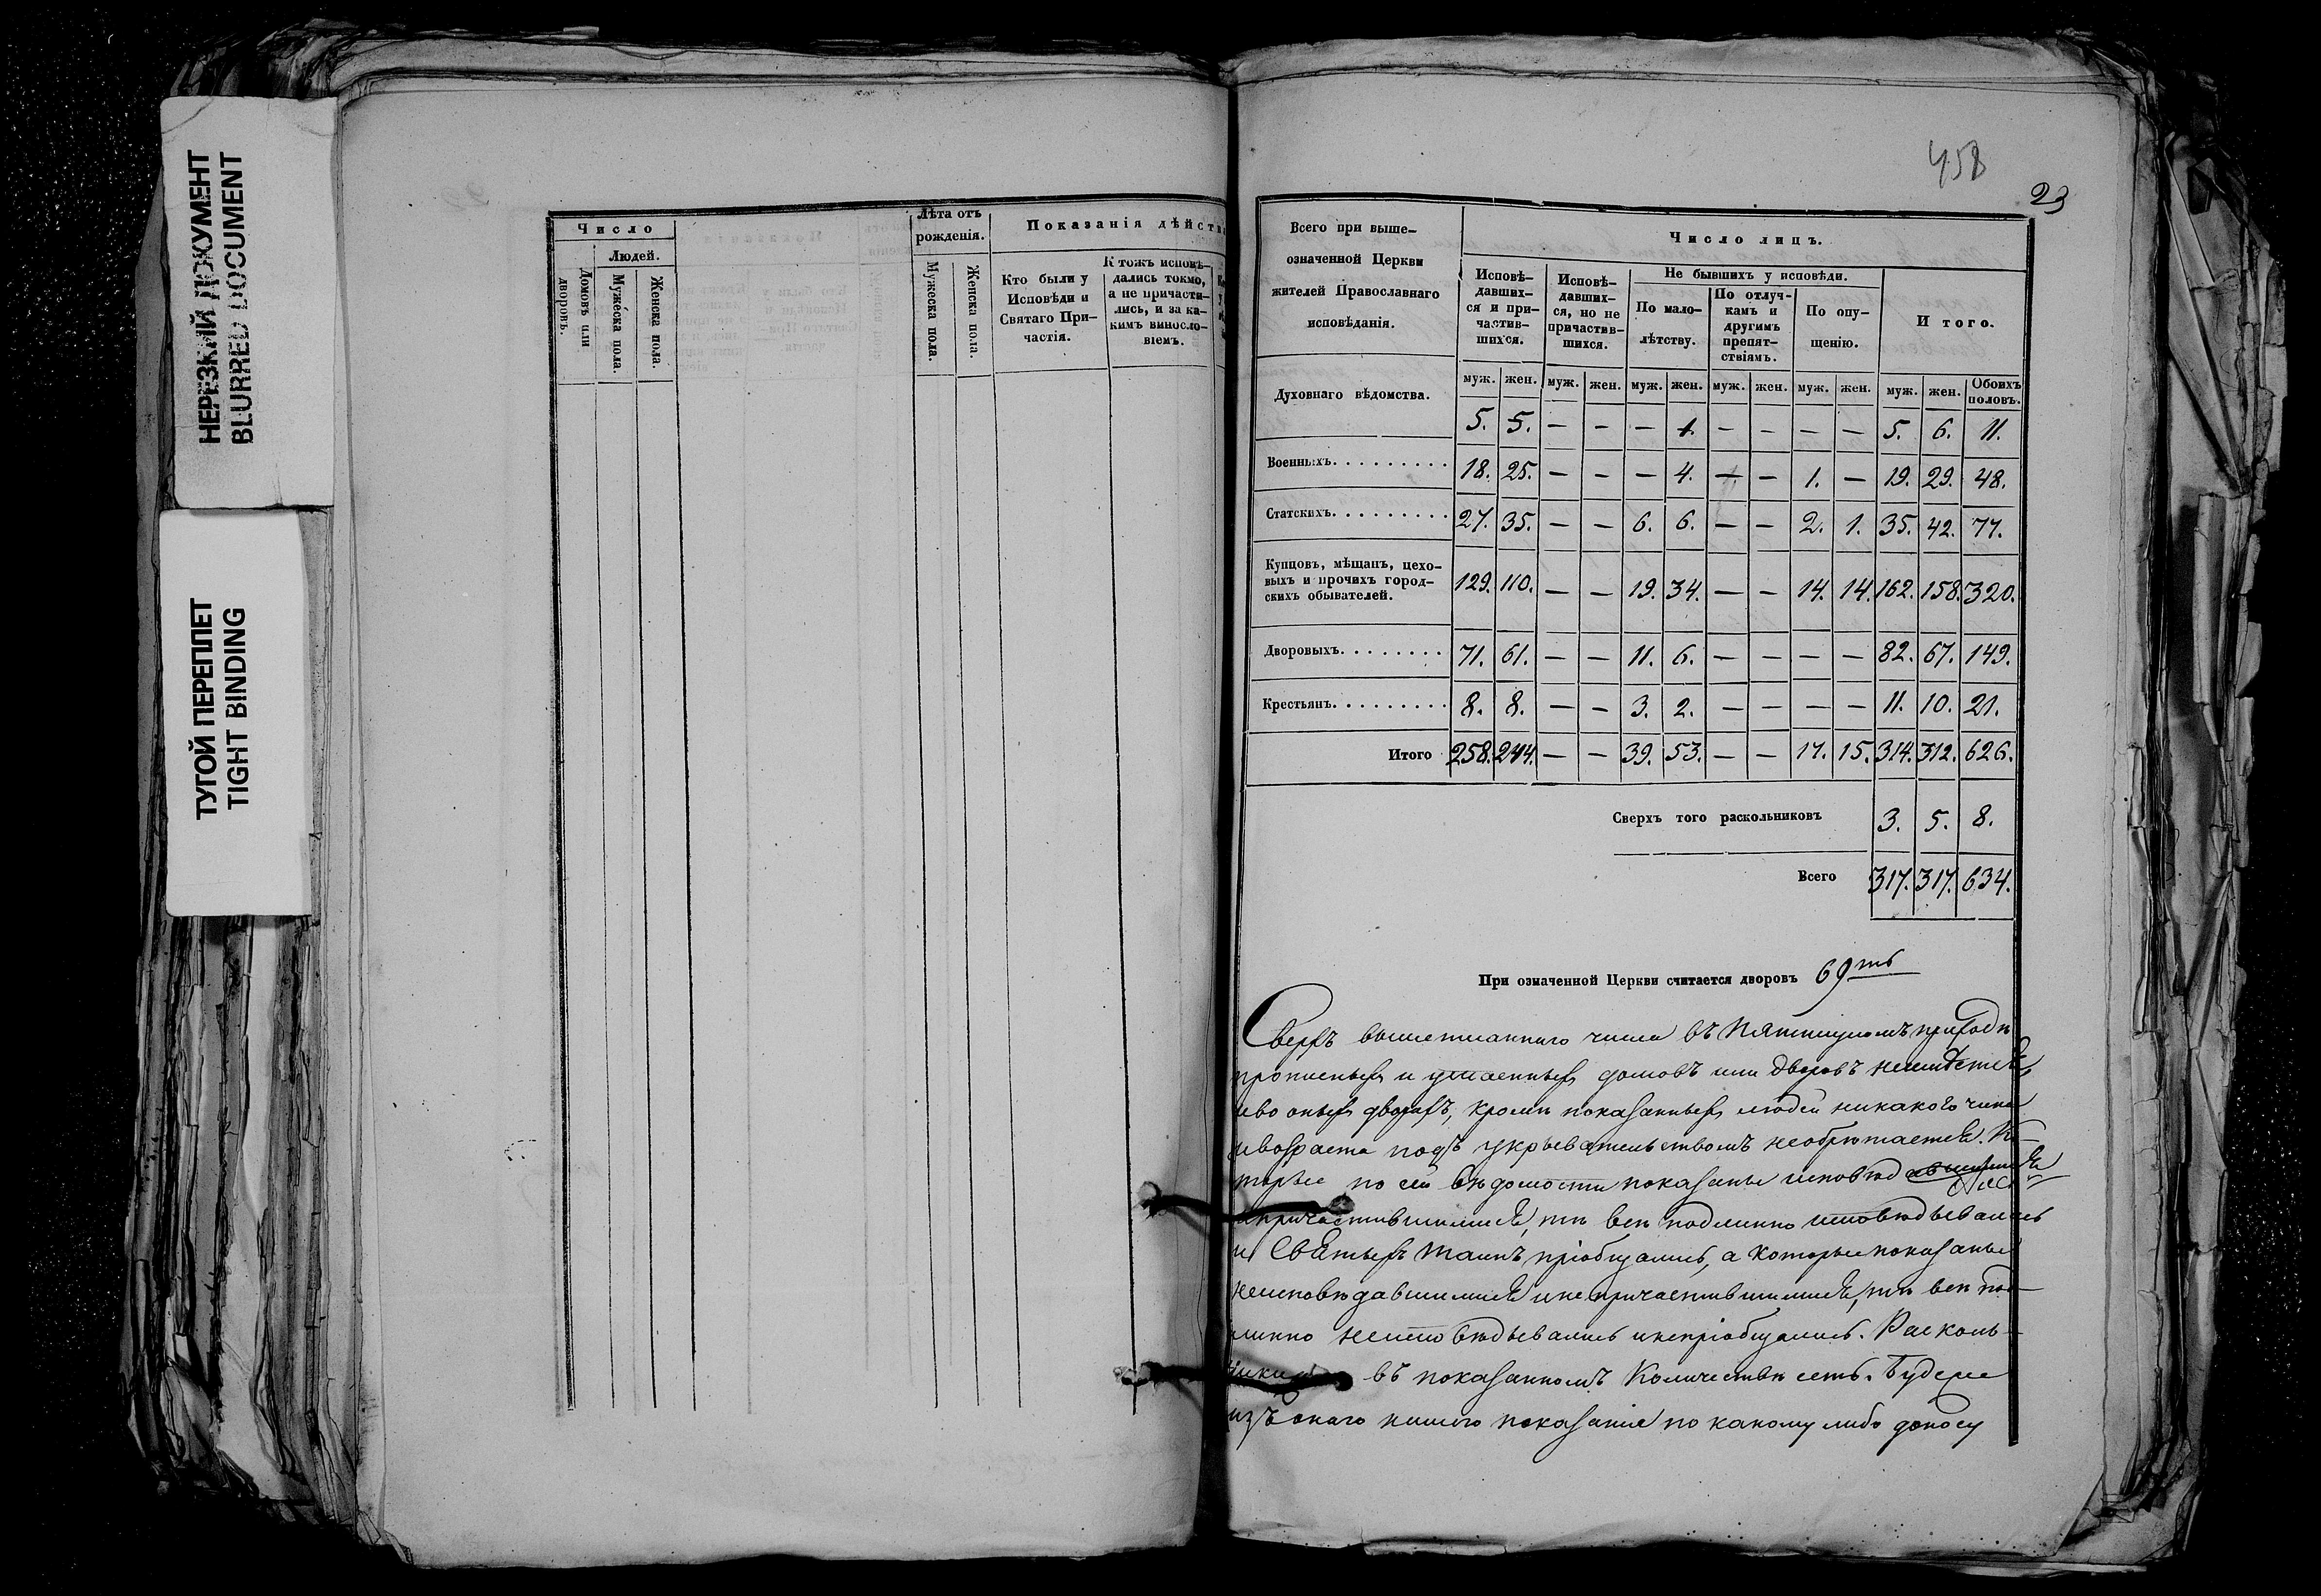 НЕРЕЗКИЙ ДОКУМЕНТ
BLURRED DOCUMENT
ТУГОЙ ПЕРЕПЛЕТ
TIGHT BINDING
Число
Людей.
Домовъ или дворовъ.
Мужеска пола.
Женска пола.
Лѣта отъ рожденія.
Мужеска пола.
Женска пола.
Показанія дѣйств
Кто были у
Исповѣди и
Святаго При-
частія.
К тожъ исповѣ-
дались токмо,
а не причасти-
лись, и за ка-
кимъ винословіемъ.
458
23
Всего при выше-
означенной Церкви
жителей Православнаго
исповѣданія.
Число лицъ.
Исповѣ-
давших-
ся и при-
частив-
шихся.
Исповѣ-
давших-
ся, но не
причастив-
шихся.
Не бывшихъ у исповѣди.
По мало-
лѣтству.
По отлуч-
камъ и
другимъ
препят-
ствіямъ.
По опу-
щенію.
И того.
муж. жен. муж. жен. муж. жен. муж. жен. муж. жен. муж. жен. Обоихъ половъ.
Духовнаго вѣдомства. 5. 5. — — — 1. — — — — 5. 6. 11.
Военныхъ. 18. 25. — — — 4. — — 1. — 19. 29. 48.
Статскихъ. 27. 35. — — 6. 6. — — 2. 1. 35. 42. 77.
Купцовъ, мѣщанъ, цехо-
выхъ и прочихъ город-
скихъ обывателей. 129. 110. — — 19. 34. — — 14. 14. 162. 158. 320.
Дворовыхъ. 71. 61. — — 11. 6. — — — — 82. 67. 149.
Крестьянъ. 8. 8. — — 3. 2. — — — — 11. 10. 21.
Итого 258. 244. — — 39. 53. — — 17. 15. 314. 312. 626.
Сверхъ того раскольниковъ 3. 5. 8.
Всего 317. 317. 634.
При означенной Церкви считается дворовъ 69ть
Сверхъ вышеписаннаго числа въ Пятницкомъ приходѣ
прописныхъ и утаенныхъ домовъ или дворовъ неимѣется
иво оныхъ дворахъ, кромѣ показанныхъ людей никакого чина
ивозраста подъ укрывательствомъ необрѣтается. Ко-
торые по сей вѣдомости показаны исповѣд
ипричастившимися, тѣ всѣ подлинно исповѣдывались
и Святыхъ Таинъ пріобщались, а которые показаны
неисповѣдавшимися инепричастившимися, тѣ всѣ под-
линно неисповѣдывались инепріобщались. Расколь-
ники въ показанномъ Количествѣ есть. Будеже
изъ онаго нашего показанія по какому либо доносу